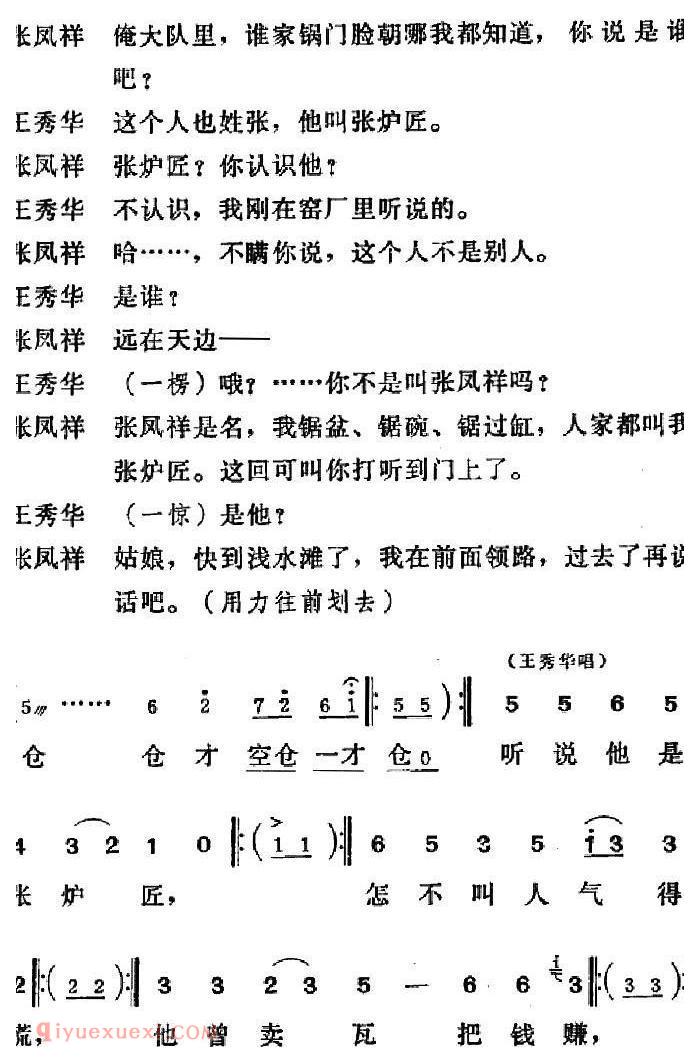 张凤祥 俺大队里，谁家锅门脸朝哪我都知道，你说是谁
吧？
王秀华 这个人也姓张，他叫张炉匠。
张凤祥 张炉匠？你认识他？
王秀华 不认识，我刚在窑厂里听说的。
张凤祥 哈……，不瞒你说，这个人不是别人。
王秀华 是谁？
张凤祥 远在天边——
王秀华 （一楞）哦？……你不是叫张凤祥吗？
张凤祥 张凤祥是名，我锯盆、锯碗、锯过缸，人家都叫我
张炉匠。这回可叫你打听到门上了。
王秀华 （一惊）是他？
张凤祥 姑娘，快到浅水滩了，我在前面领路，过去了再说
话吧。（用力往前划去）
（王秀华唱）
5 …… 6 2 7 2 6 1 ‖: 5 5 ) :‖ 5 5 6 5
仓 仓才 空仓 一才 仓0 听说他是
4 3 2 1 0 ‖: ( 1 1 ) :‖ 6 5 3 5 1 3 3
张炉匠， 怎不叫人气得
2 ‖: ( 2 2 ) :‖ 3 3 2 3 5 — 6 6 3 ‖: ( 3 3 ) :‖
慌， 他曾卖瓦把钱赚，
qiyuexuexi.com